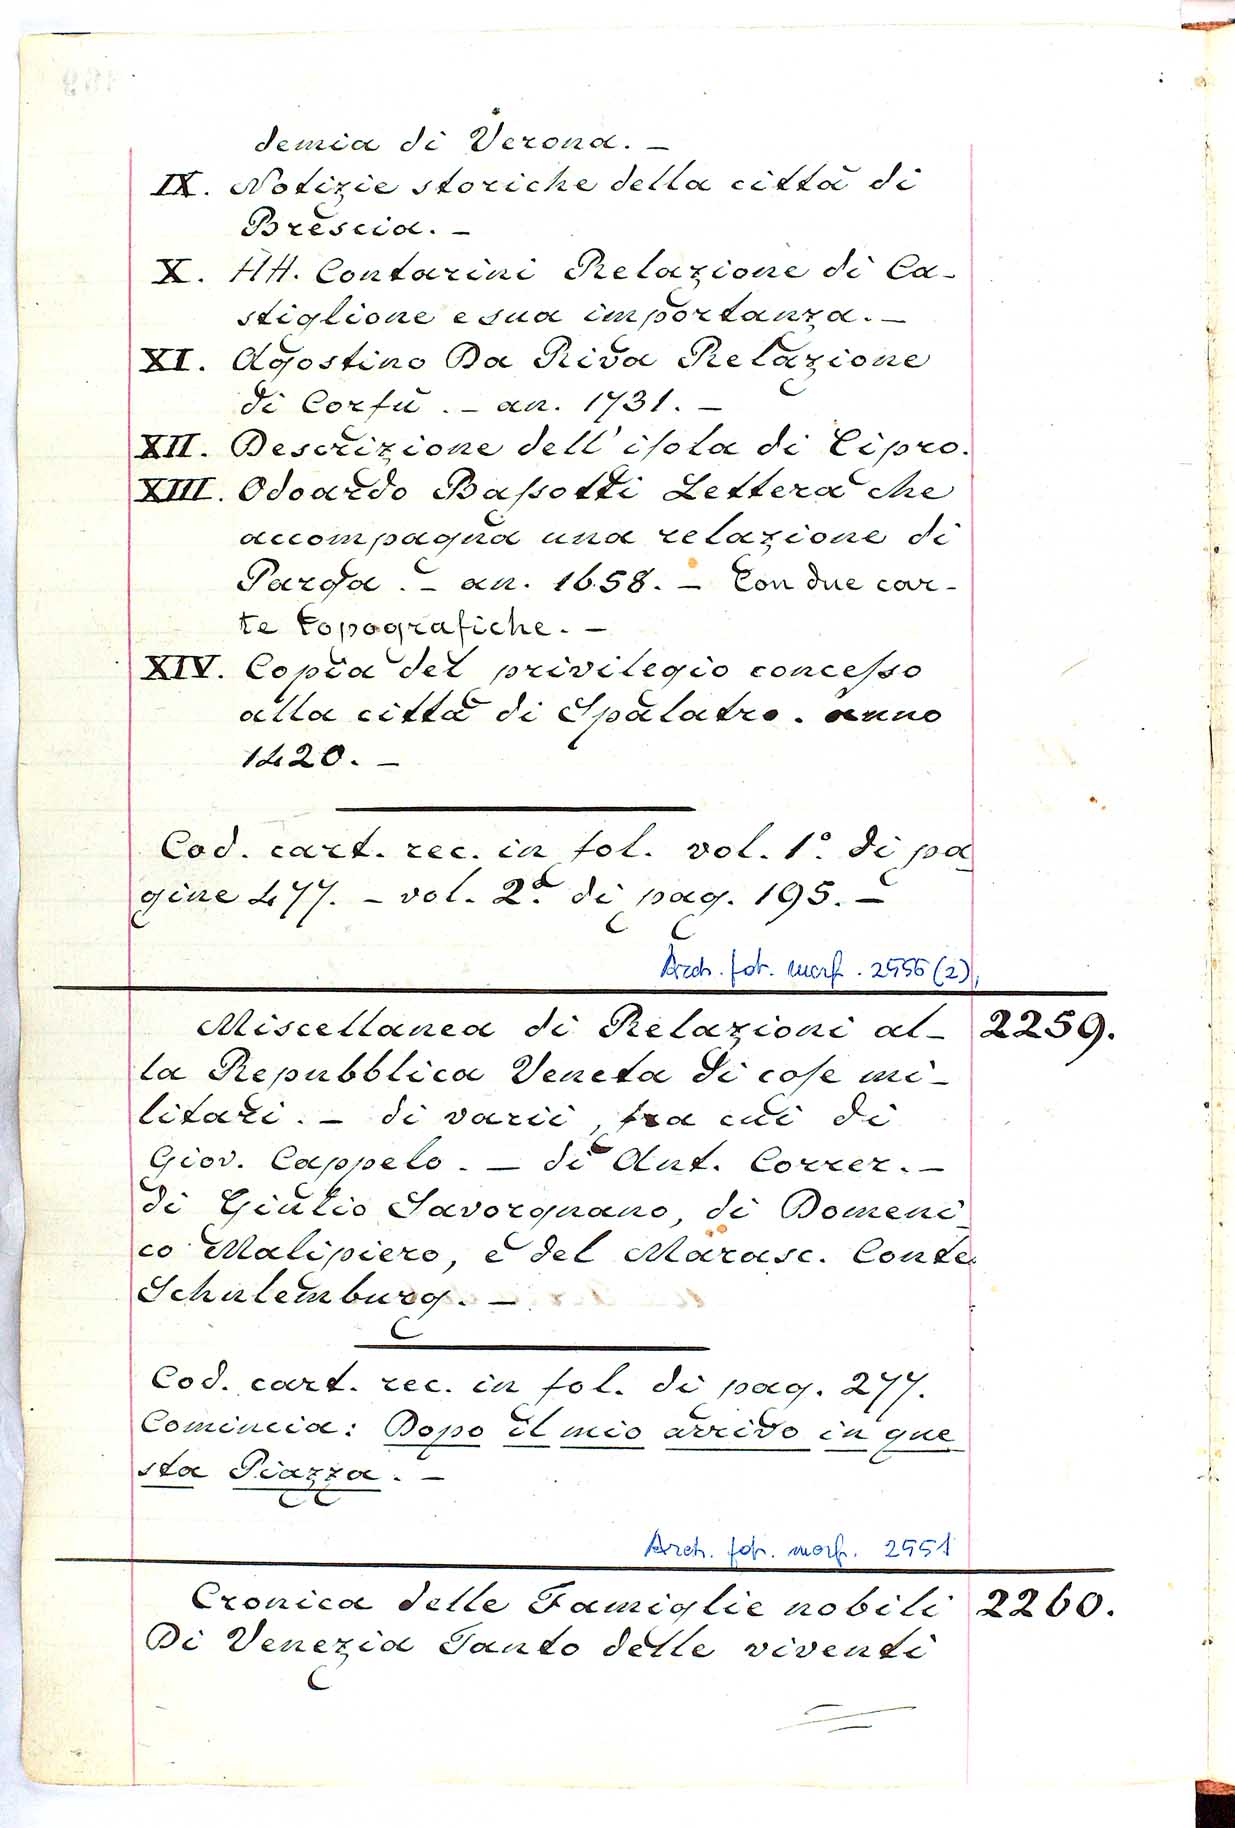 demia di Verona. –
IX. Notizie storiche della città di
Brescia. –
X. HH. Contarini Relazione di Ca-
stiglione e sua importanza. –
XI. Agostino Da Riva Relazione
di Corfù. – an. 1731. –
XII. Descrizione dell' iſola di Cipro.
XIII. Odoardo Baſsotti Lettera che
accompagna una relazione di
Parga. – an. 1658. – Con due car-
te topografiche. –
XIV. Copia del privilegio conceſso
alla città di Spalatro. anno
1420. –
Cod. cart. rec. in fol. vol. 1.º di pa-
gine 477. – vol. 2.º di pag. 195. –
Arch. fot. marf. 2556 (2)
Miscellanea di Relazioni al- 2259.
la Repubblica Veneta di coſe mi-
litari. – di varii, fra cui di
Giov. Cappelo. – di Ant. Correr. –
di Giulio Savorgnano, di Domeni-
co Malipiero, e del Marasc. Conte
Schulemburg. –
Cod. cart. rec. in fol. di pag. 277.
Comincia: Dopo il mio arrivo in que
sta Piazza. –
Arch. fot. marf. 2551
Cronica delle Famiglie nobili 2260.
Di Venezia Tanto delle viventi